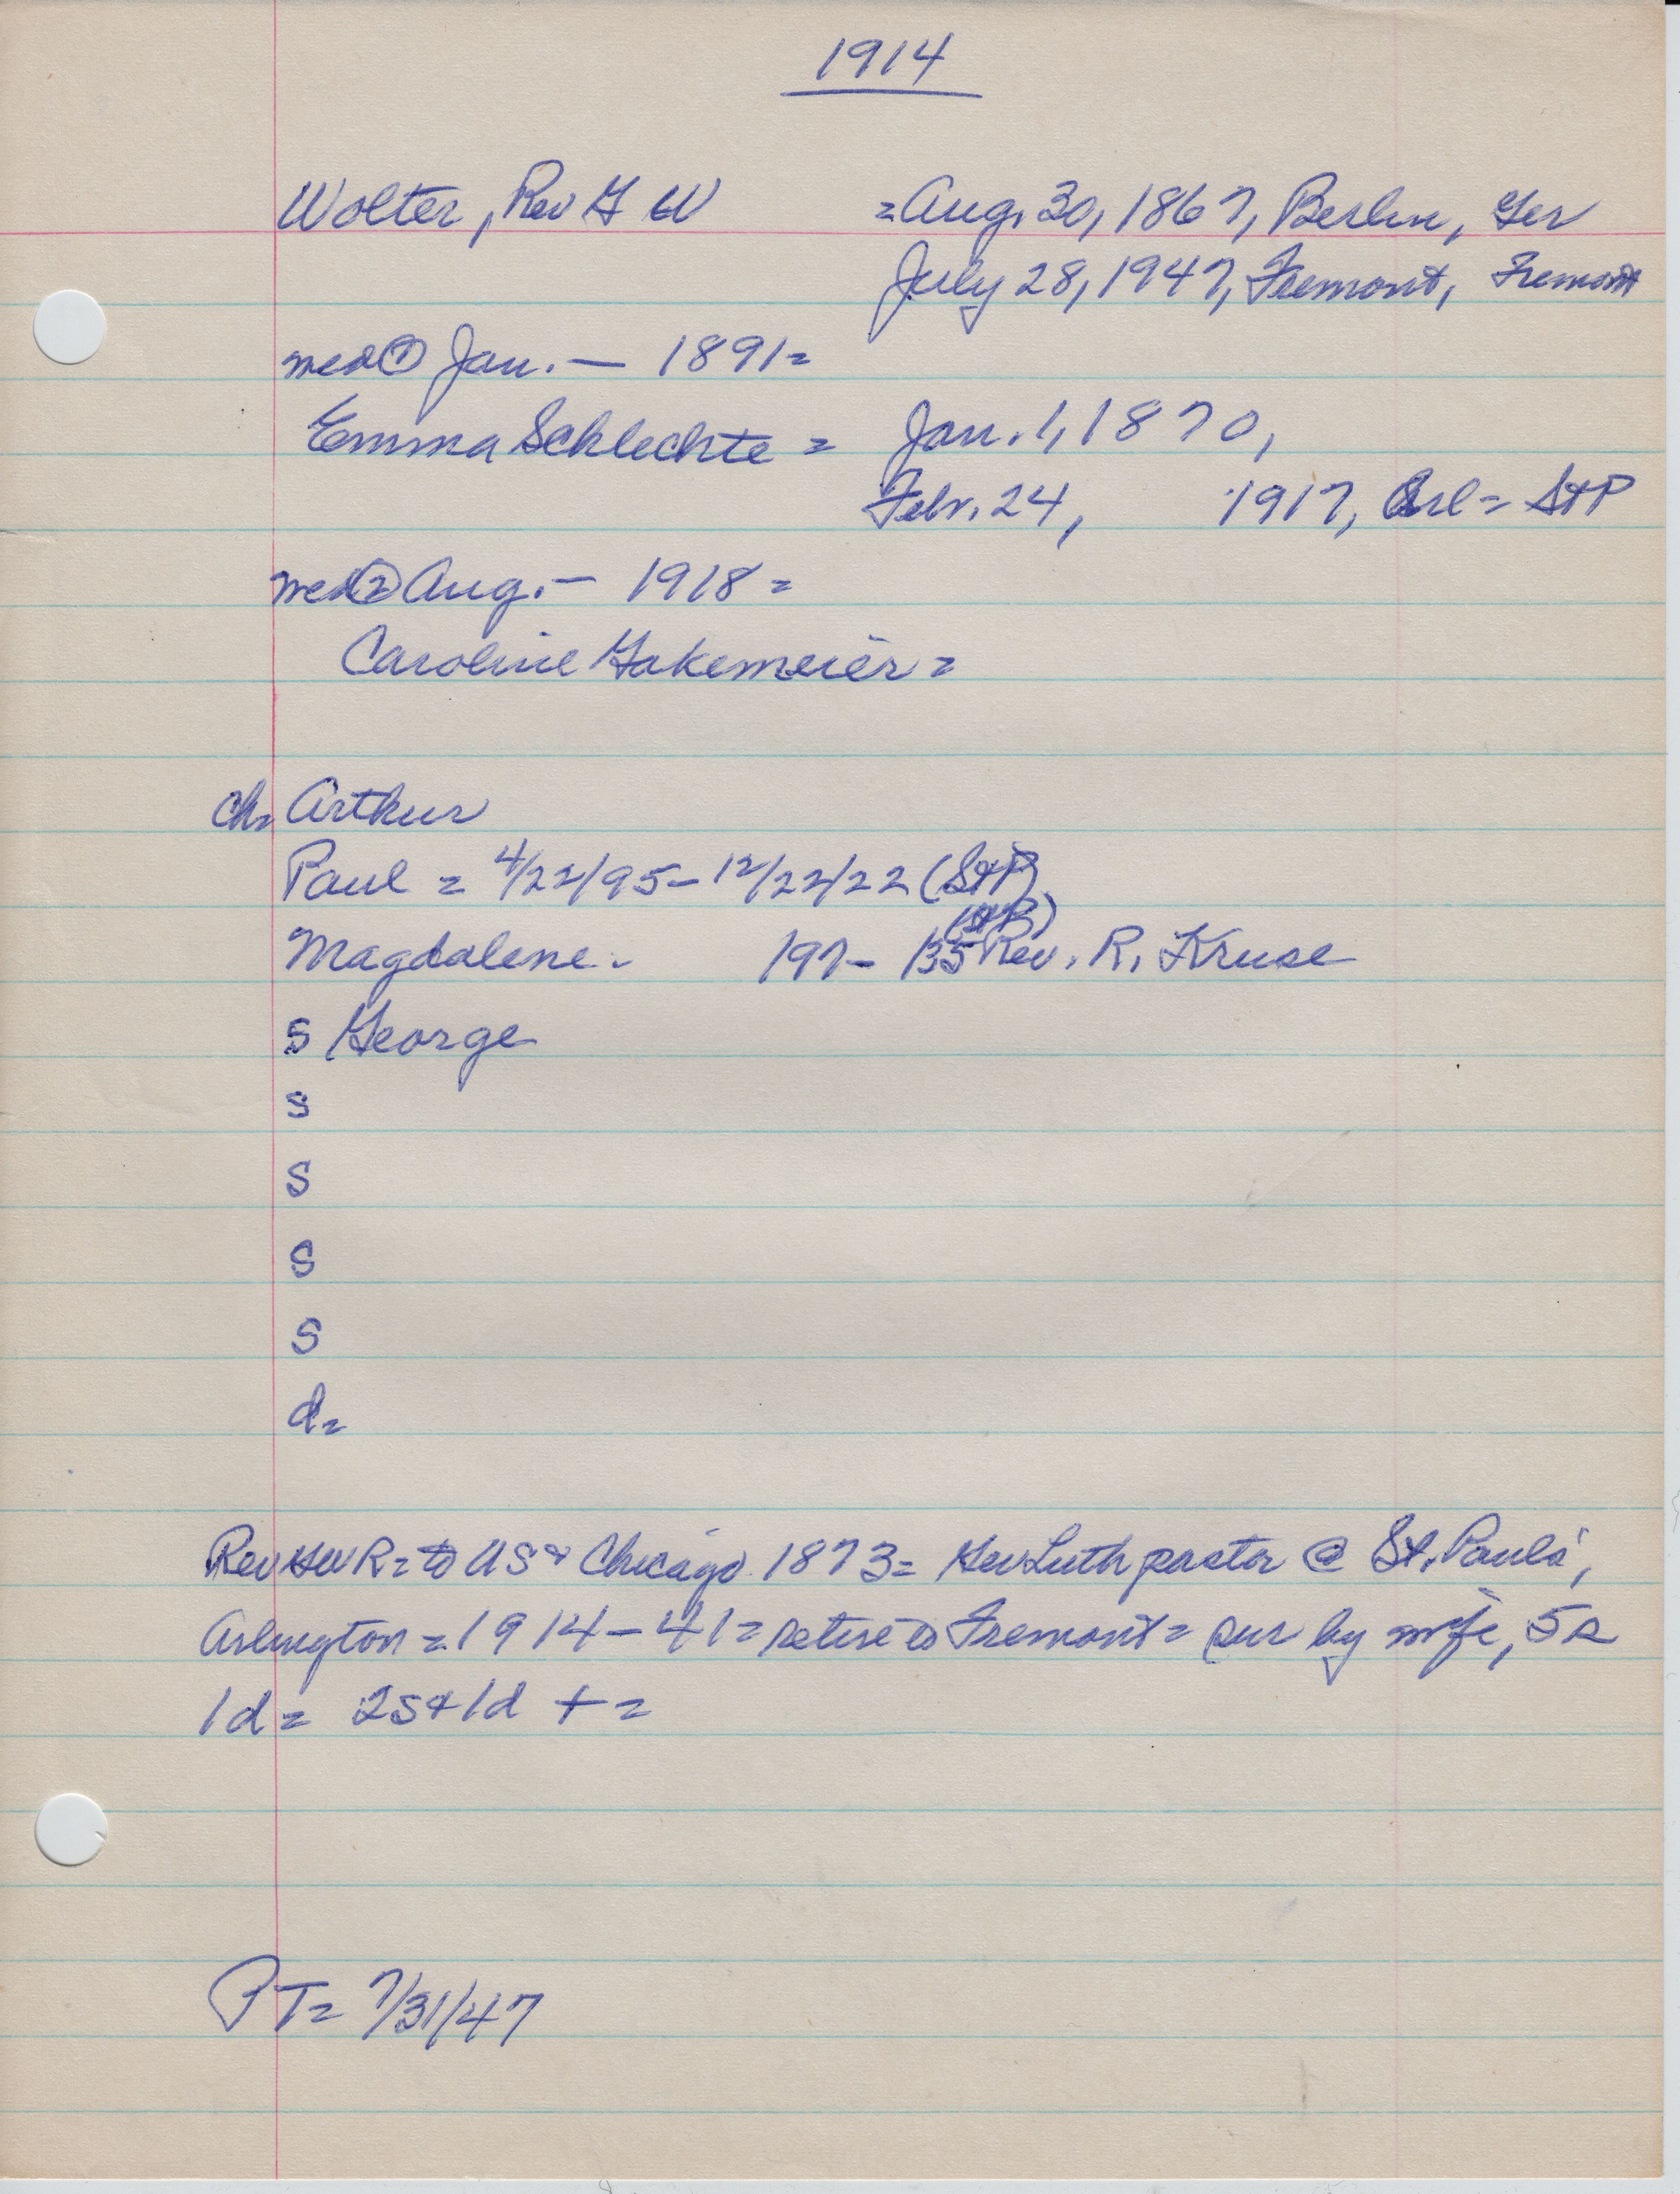 1914
Wolter, Rev G W = Aug. 30, 1867, Berlin, Ger
July 28, 1947, Fremont, Fremont
med ① Jan. — 1891 =
Emma Schlechte = Jan. 1, 1870,
Febr. 24, 1917, Arl = StP
med ② Aug. — 1918 =
Caroline Gakemeier =
ch = Arthur
Paul = 4/22/95 - 12/22/22 (StP)
(StP)
Magdalene - 197 - 135 Rev. R. Kruse
s George
s
s
s
s
d =
Rev GW R = to US & Chicago 1873 = Ger Luth pastor @ St. Paul's,
Arlington = 1914 - 41 = retire to Fremont = sur by wife, 5 s
1 d = 2s & 1d + =
PT = 7/31/47